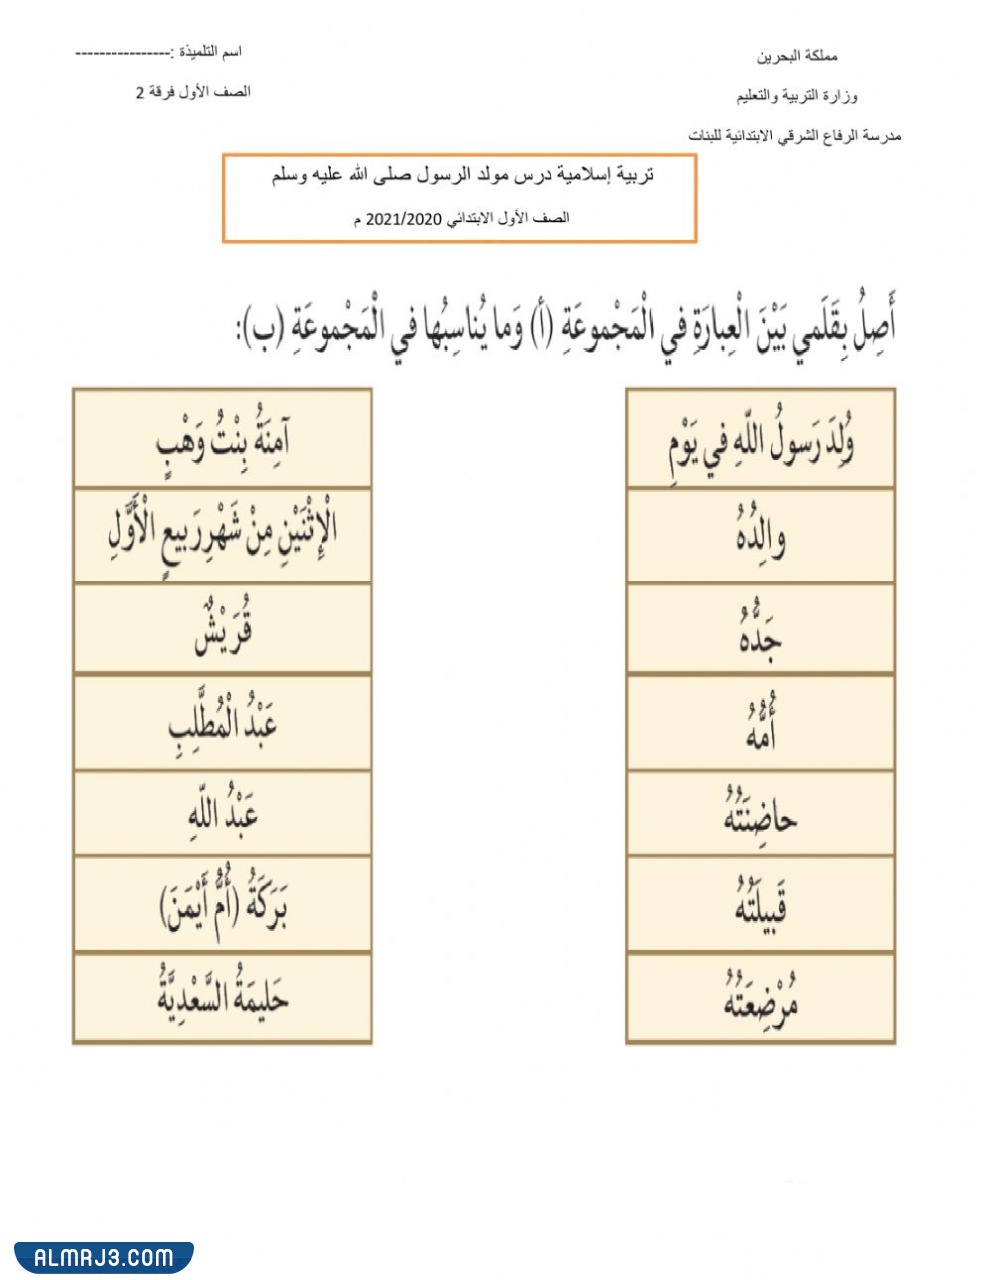 مملكة البحرين
اسم التلميذة :----------------
وزارة التربية والتعليم
الصف الأول فرقة 2
مدرسة الرفاع الشرقي الابتدائية للبنات
تربية إسلامية درس مولد الرسول صلى الله عليه وسلم
الصف الأول الابتدائي 2021/2020 م
أَصِلُ بِقَلَمي بَيْنَ الْعِبارَةِ في الْمَجْموعَةِ (أ) وَما يُناسِبُها في الْمَجْموعَةِ (ب):
وُلِدَ رَسولُ اللّهِ في يَوْمِ
آمِنَةُ بِنْتُ وَهْبٍ
والِدُهُ
الْإِثْنَيْنِ مِنْ شَهْرِ رَبيعٍ الْأَوَّلِ
جَدُّهُ
قُرَيْشٌ
أُمُّهُ
عَبْدُ الْمُطَّلِبِ
حاضِنَتُهُ
عَبْدُ اللّهِ
قَبيلَتُهُ
بَرَكَةُ (أُمُّ أَيْمَنَ)
مُرْضِعَتُهُ
حَليمَةُ السَّعْدِيَّةُ
ALMRJ3.COM